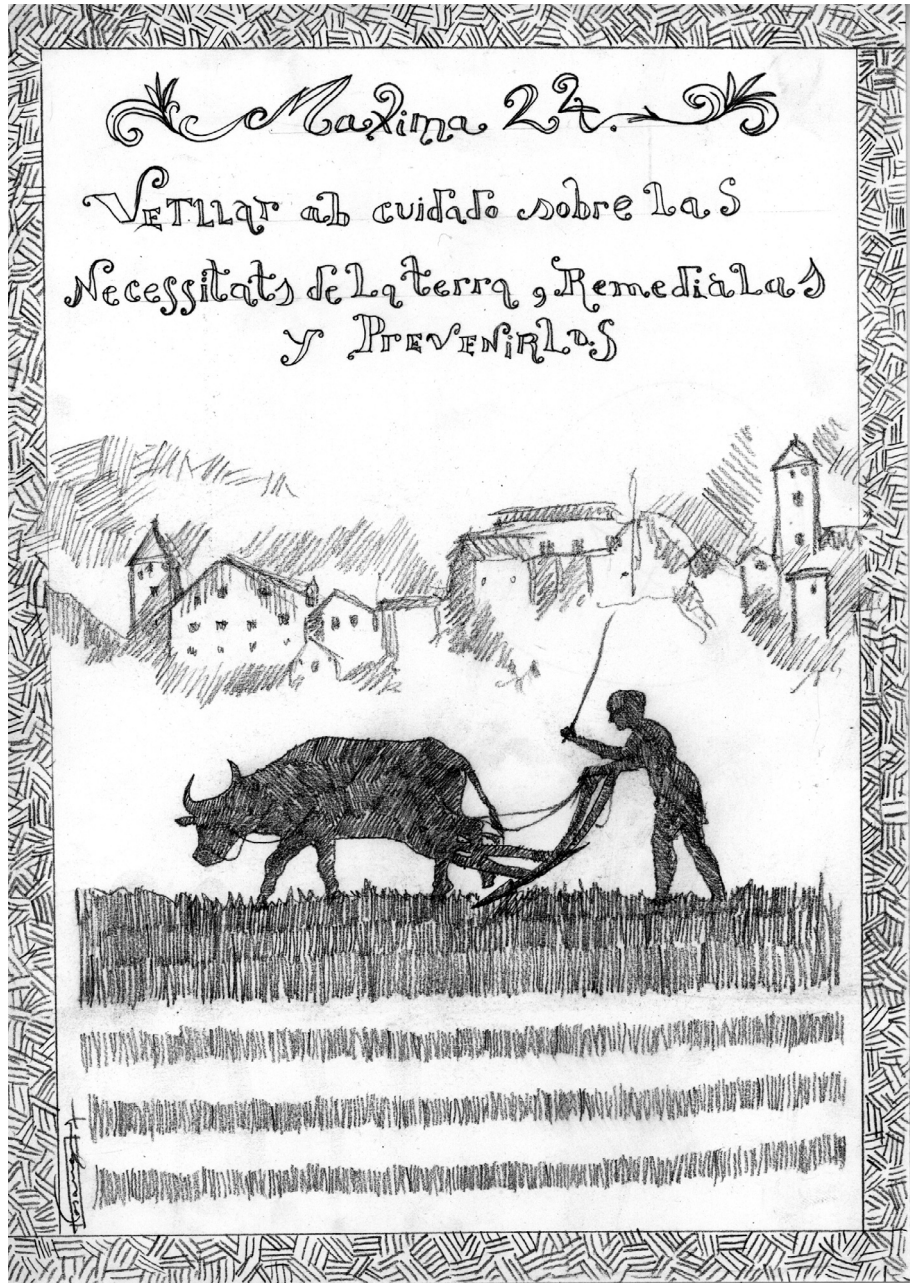 Maxima 24.
Vetllar ab cuidado sobre las
Necessitats de la terra, Remediàlas
y Prevenirlas